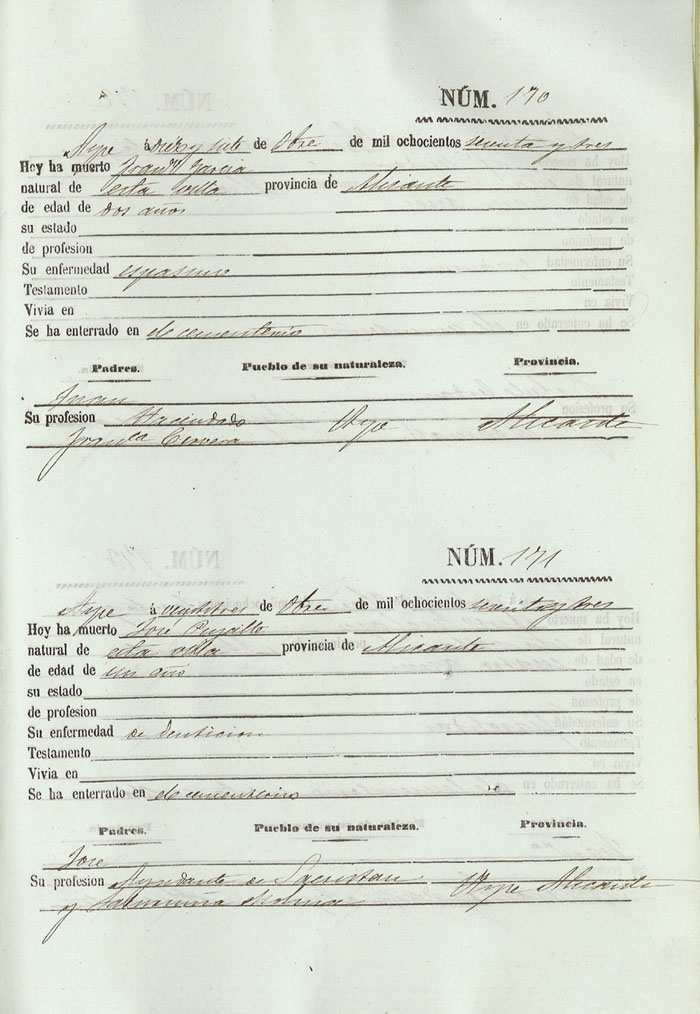 NÚM. 170
Aspe á diez y siete de Obre de mil ochocientos setenta y tres
Hoy ha muerto Garcia
natural de esta villa provincia de Alicante
de edad de dos años
su estado
de profesion
Su enfermedad espasmo
Testamento
Vivia en
Se ha enterrado en el cementerio
Padres. Pueblo de su naturaleza. Provincia.
Juan
Su profesion Hacendado Aspe Alicante
Franca Cervera
NÚM. 171
Aspe á de Obre de mil ochocientos setenta y tres
Hoy ha muerto José
natural de esta villa provincia de Alicante
de edad de un año
su estado
de profesion
Su enfermedad de denticion
Testamento
Vivia en
Se ha enterrado en el cementerio
Padres. Pueblo de su naturaleza. Provincia.
José
Su profesion Ayudante de Sacristan Aspe Alicante
y Molina